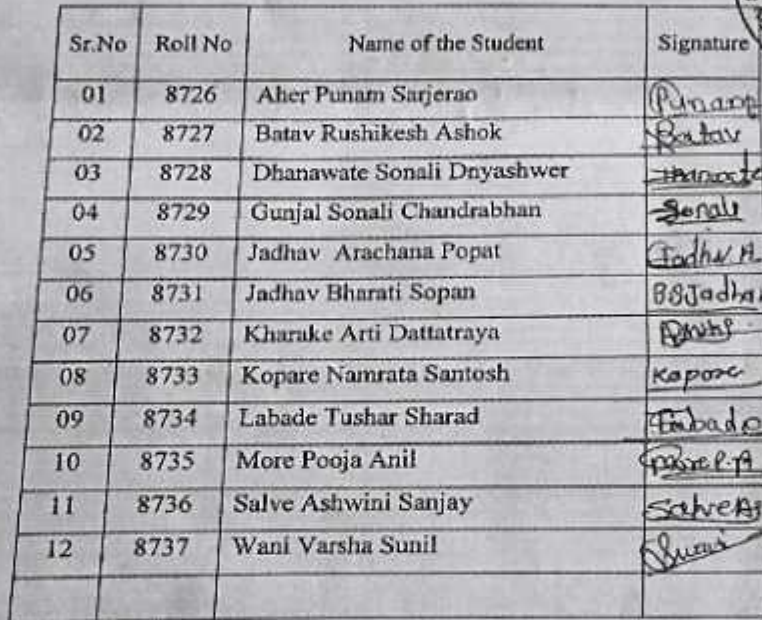 Sr.No Roll No Name of the Student Signature
01 8726 Aher Punam Sarjerao Punam
02 8727 Batav Rushikesh Ashok Batav
03 8728 Dhanawate Sonali Dnyashwer
04 8729 Gunjal Sonali Chandrabhan Sonali
05 8730 Jadhav Arachana Popat Jadhav A.
06 8731 Jadhav Bharati Sopan BSJadhav
07 8732 Kharake Arti Dattatraya
08 8733 Kopare Namrata Santosh Kopare
09 8734 Labade Tushar Sharad Labade
10 8735 More Pooja Anil More P.A
11 8736 Salve Ashwini Sanjay Salve AS
12 8737 Wani Varsha Sunil